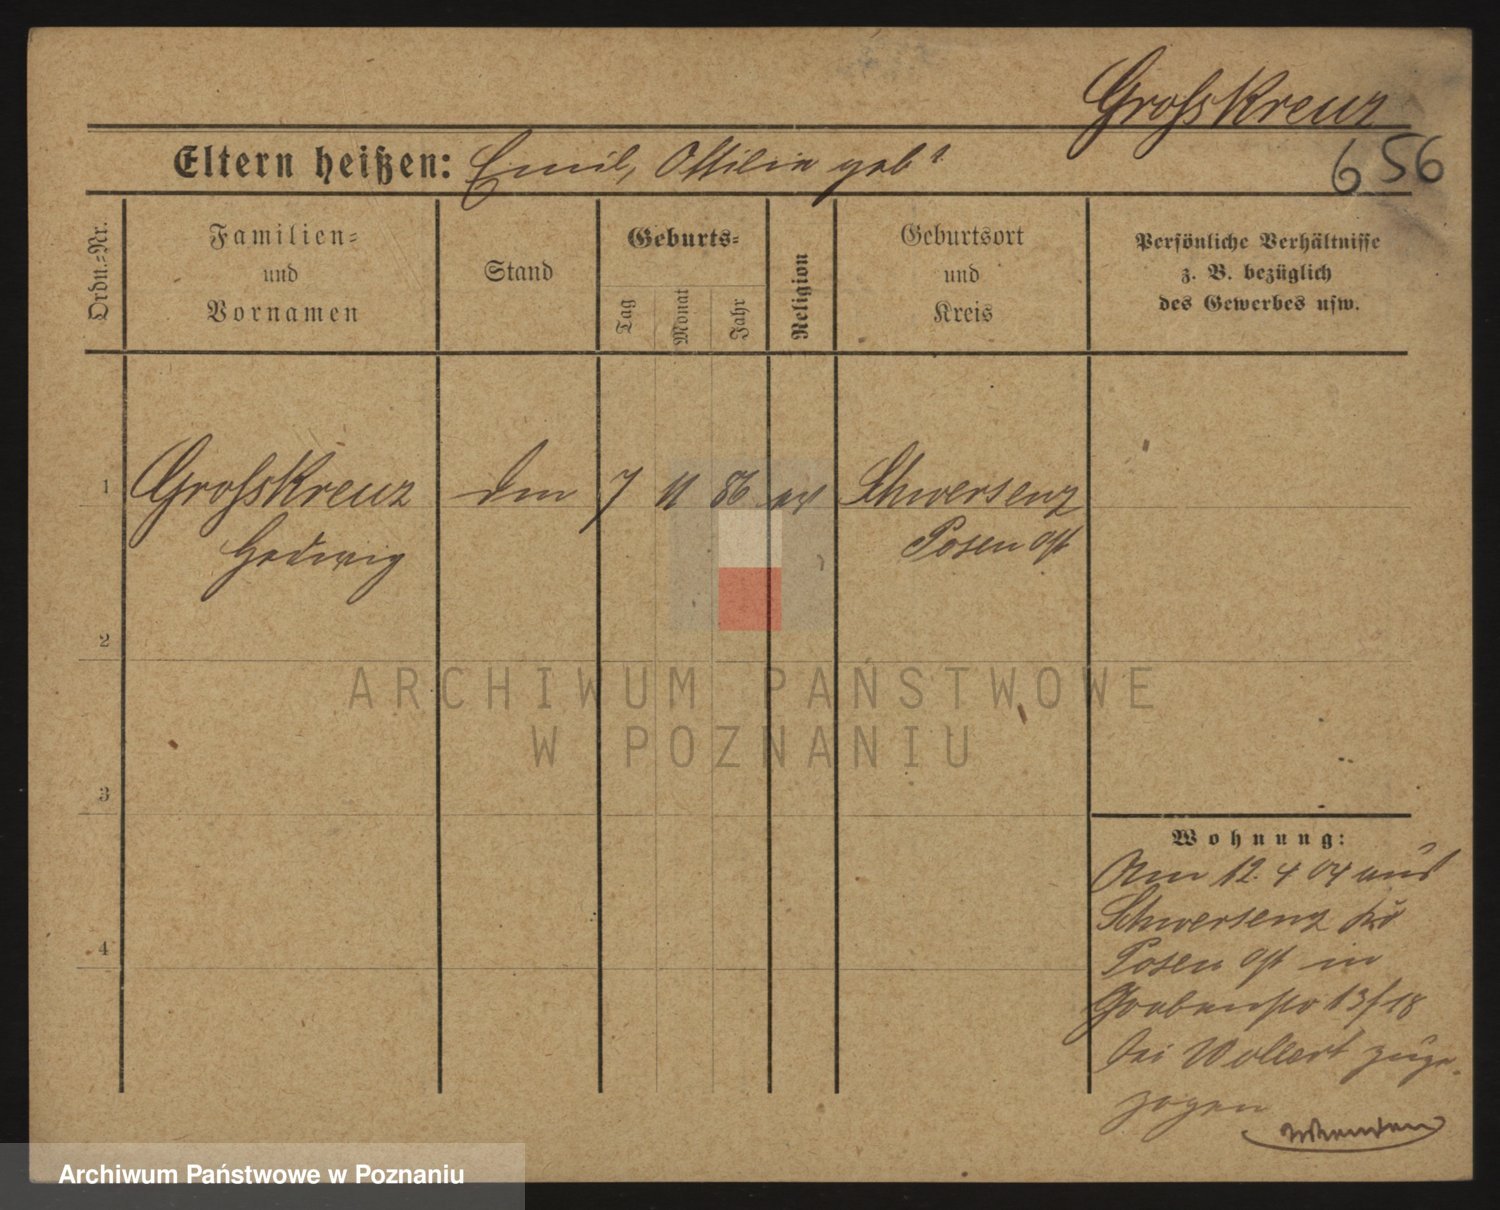 Grosskreuz
656
Eltern heißen: Emil, Ottilie geb ?
Ordn.-Nr.
Familien-
und
Vornamen
Stand
Geburts-
Tag
Monat
Jahr
Religion
Geburtsort
und
Kreis
Persönliche Verhältnisse
z. B. bezüglich
des Gewerbes usw.
1
Grosskreuz
Hedwig
7 11 86
Schwersenz
Posen Ost
2
ARCHIWUM PAŃSTWOWE
W POZNANIU
3
Wohnung:
Am 12. 4 04 aus
Schwersenz Kr
4
Posen Ost in
Grabenstr 13/18
bei Wollert zuge-
zogen
Archiwum Państwowe w Poznaniu